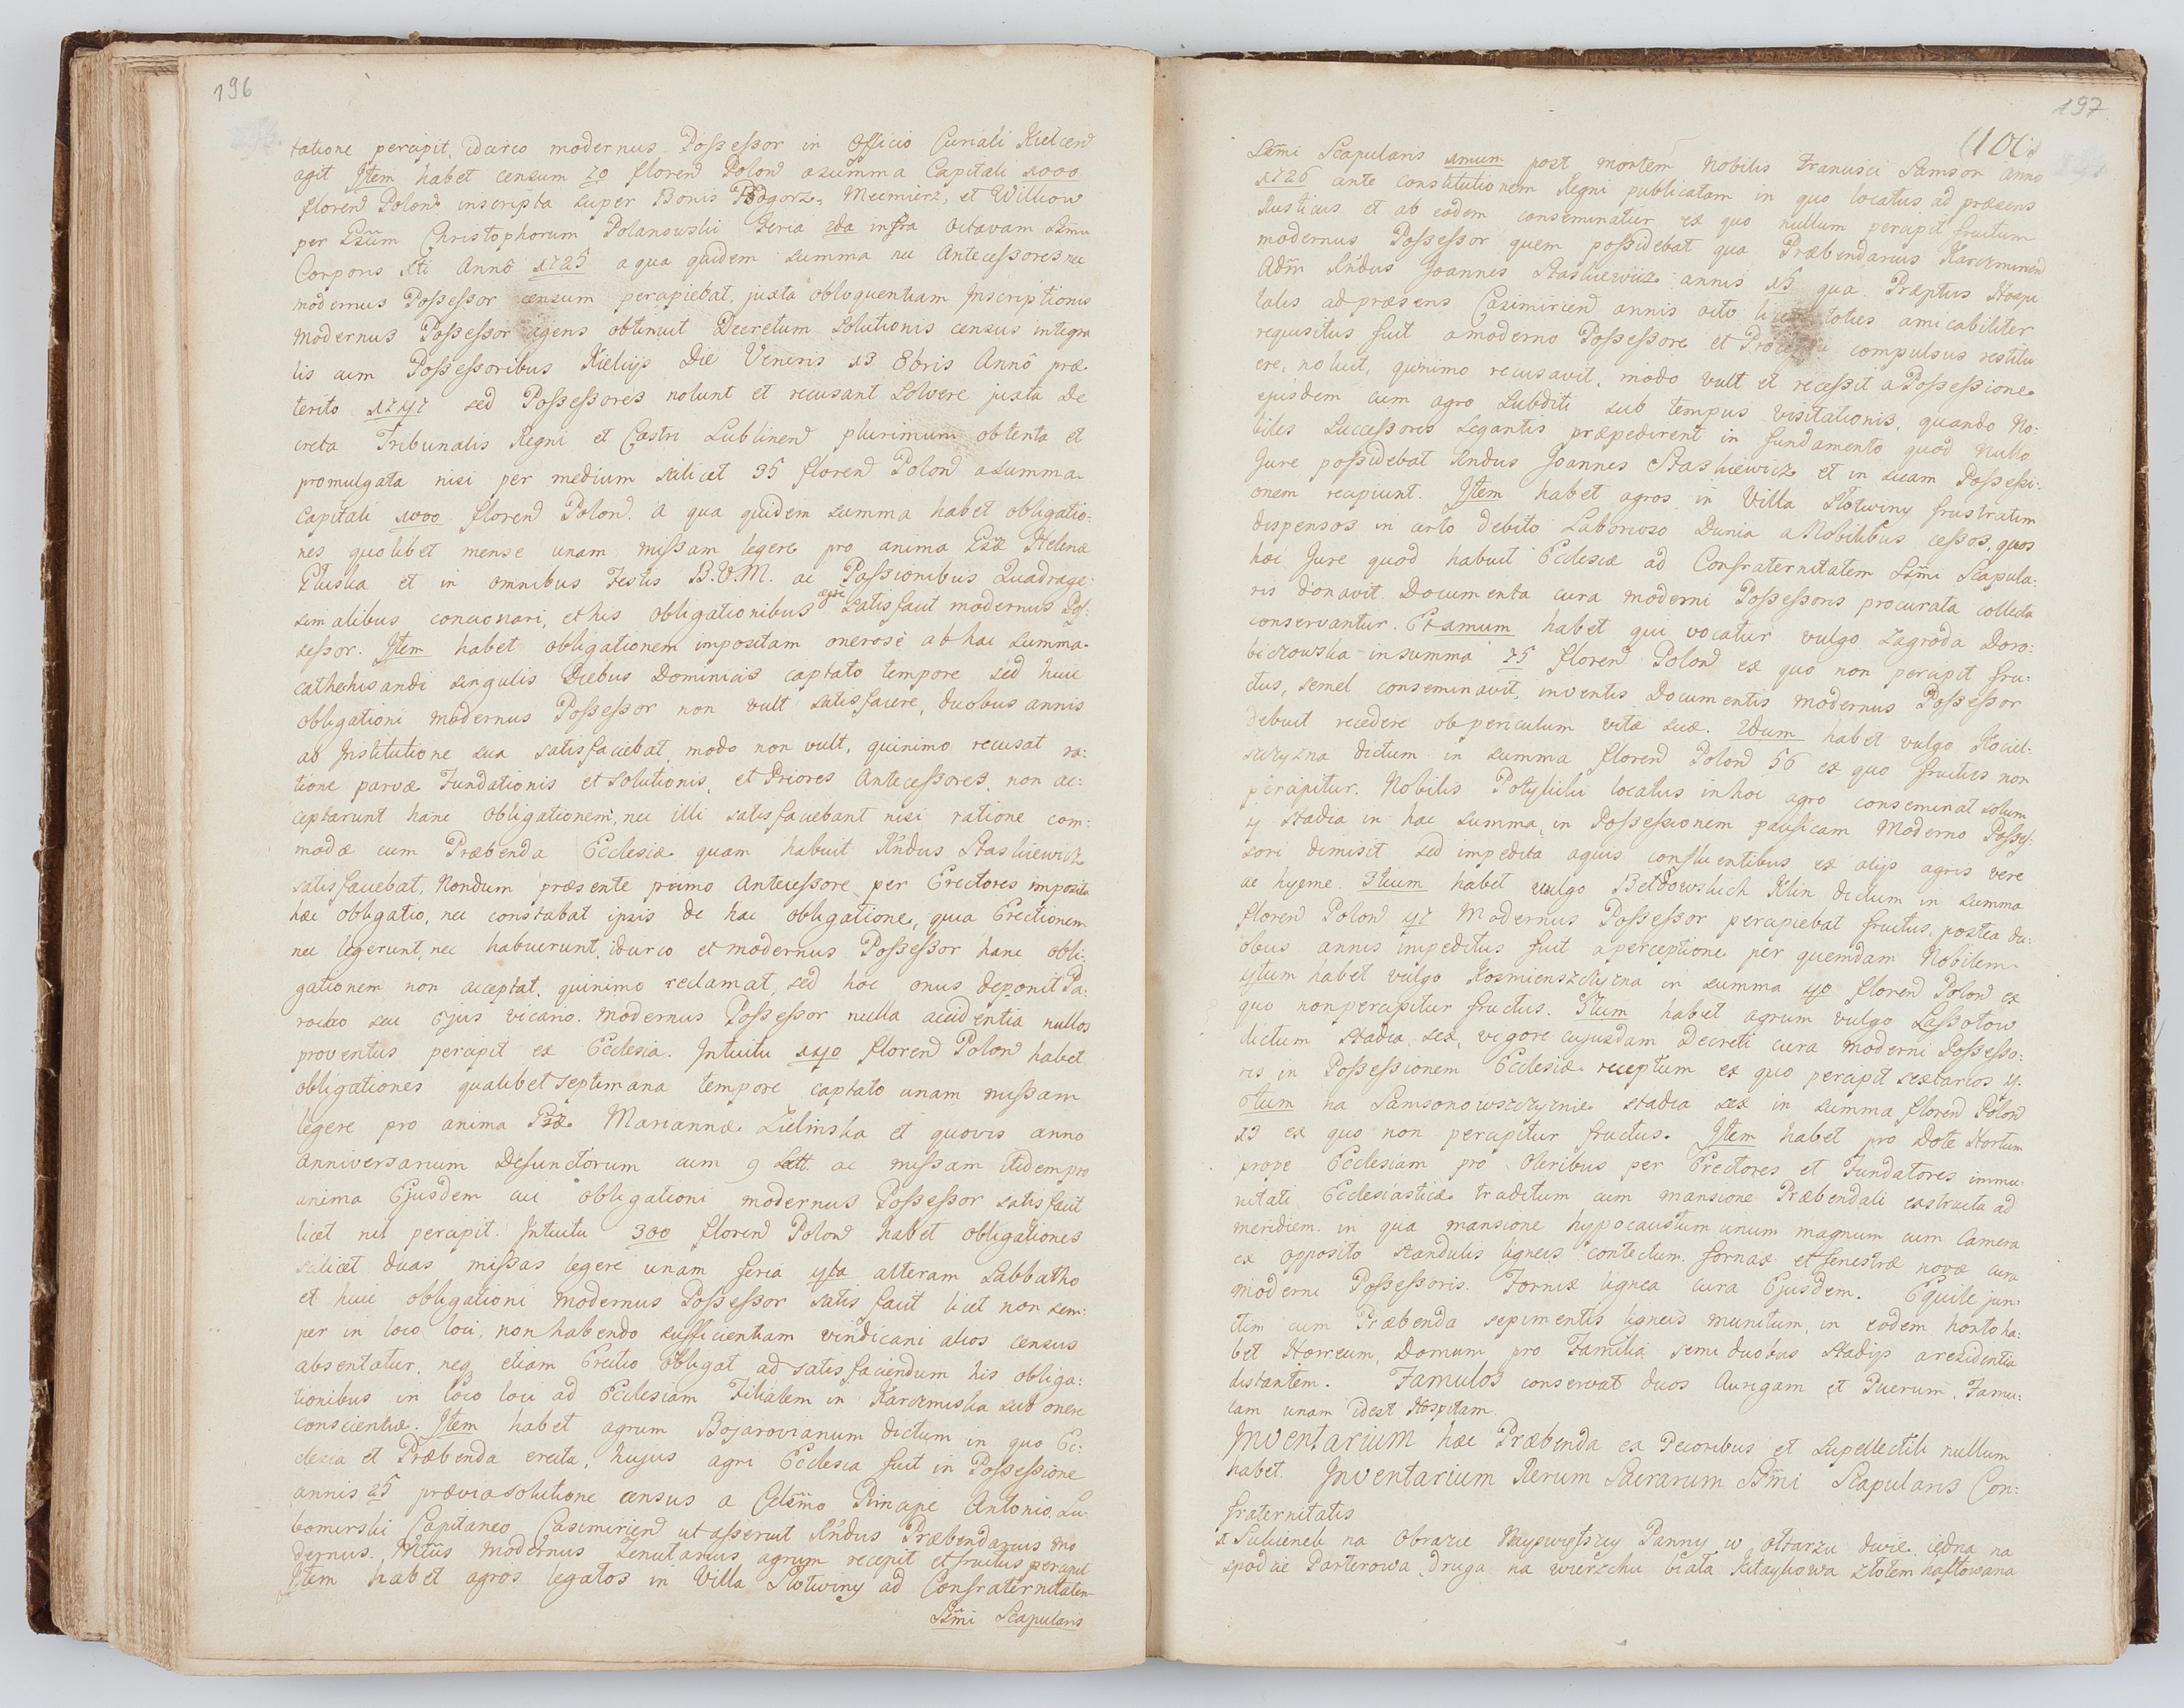 196
tatione percipit, idcirco modernus Possessor in Officio Curiali Kielcen
agit Item habet censum 70 floren Polon a summa Capitali 1000
floren Polon inscripta super Bonis Podgorz, Mecmierz, et Wilkow
per Gsum Christophorum Polanowski Feria 2da infra Octavam SSmi
Corporis Xti Annô 1725 a qua quidem summa nec Antecessores nec
modernus Possessor censum percipiebat, juxta obloquentiam Inscriptionis
modernus Possessor agens obtinuit Decretum solutionis census integra
lis cum Possessoribus Kielcijs Die Veneris 13 8bris Annô præ
terito 1747 sed Possessores nolunt et recusant solvere juxta De
creta Tribunalis Regni et Castri Lublinen plurimum obtenta et
promulgata nisi per medium scilicet 35 floren Polon a summa
Capitali 1000 floren Polon. a qua quidem summa habet obligatio:
nes quolibet mense unam missam legere pro anima Gsæ Helenæ
Gluska et in omnibus Festis B.V.M. ac Passionibus Quadrage:
simalibus concionari, et his obligationibus ægre satisfacit modernus Pos:
sessor. Item habet obligationem impositam onerosè ab hac summa
cathehisandi singulis Diebus Dominicis captato tempore sed huic
obligationi modernus Possessor non vult satisfacere, duobus annis
ab Institutione sua satisfaciebat modo non vult, quinimo recusat ra:
tione parvæ Fundationis et solutionis, et Priores Antecessores non ac:
ceptarunt hanc obligationem, nec illi satisfaciebant nisi ratione com:
modæ cum Præbenda Ecclesiæ quam habuit Rndus Staskiewicz
satisfaciebat. Nondum præsente primo Antecessore per Erectores imposita
hæc obligatio, nec constabat ipsis de hac obligatione, quia Erectionem
nec legerunt, nec habuerunt, idcirco et modernus Possessor hanc obli:
gationem non acceptat, quinimo reclamat, sed hoc onus deponit Pa:
rocho seu Ejus vicario. Modernus Possessor nulla accidentia nullos
proventus percipit ex Ecclesia. Intuitu 1140 floren Polon habet
obligationes qualibet septimana tempore captato unam missam
legere pro anima Gsæ Mariannæ Zielinska et quovis anno
anniversarium Defunctorum cum 9 Lett. ac missam itidem pro
anima Ejusdem cui obligationi modernus Possessor satisfacit
licet nil percipit. Intuitu 300 floren Polon habet obligationes
scilicet duas missas legere unam feria 4ta alteram Sabbatho
et huic obligationi modernus Possessor satisfacit licet non sem:
per in loco loci, non habendo sufficientiam vindicani alios census
absentatur, neq etiam Erectio obligat ad satisfaciendum his obliga:
tionibus in loco loci ad Ecclesiam Filialem in Karczmiska sub onere
conscientiæ. Item habet agrum Bojarovianum dictum in quo Ec:
clesia et Præbenda erecta, hujus agri Ecclesia fuit in Possessione
annis 25 prævia solutione census a Celsmo Principe Antonio Lu:
bomirski Capitaneo Casimirien ut asseruit Rndus Præbendarius mo
dernus. Mcus modernus Tenutarius agrum recepit et fructus percipit
Item habet agros legatos in Villa Słotwiny ad Confraternitatem
SSmi Scapularis
197
(100)
SSmi Scapularis 1mum post mortem Nobilis Francisci Samson anno
1726 ante constitutionem Regni publicatam in quo locatus ad præsens
Rusticus et ab eodem conseminatur ex quo nullum percipit fructum
modernus Possessor quem possidebat qua Præbendarius Karczminen
Adm Rndus Joannes Staskiewicz annis 15 qua Præptus Hospi
talis ad præsens Casimirien annis octo licet toties amicabiliter
requisitus fuit a moderno Possessore et Processu compulsus restitu
ere, noluit, quinimo recusavit, modo vult et recessit a Possessione
ejusdem cum agro Subditi sub tempus visitationis, quando No:
biles Successores Legantis præpedirent in fundamento quod Nullo
Jure possidebat Rndus Joannes Staskiewicz et in suam Possessi:
onem recipiunt. Item habet agros in Villa Słotwiny frustratim
dispensos in certo debito Laborioso Dunia a Nobilibus cessos, quos
hoc Jure quod habuit Ecclesiæ ad Confraternitatem SSmi Scapula:
ris donavit. Documenta cura moderni Possessoris procurata collecta
conservantur. Et 1mum habet qui vocatur vulgo Zagroda Doro:
biczowska in summa 75 floren Polon ex quo non percipit fru:
ctus, semel conseminavit, inventis Documentis modernus Possessor
debuit recedere ob periculum vitæ suæ. 2dum habet vulgo Kociel:
szczyzna dictum in summa floren Polon 56 ex quo fructus non
percipitur. Nobilis Potylicki locatus in hoc agro conseminat solum
4 stadia in hac summa, in Possessionem pacificam Moderno Posses:
sori dimisit sed impedita aquis confluentibus ex alijs agris vere
ac hyeme. 3tium habet vulgo Bełdowskich Klin dictum in summa
floren Polon 47 Modernus Possessor percipiebat fructus, postea du:
obus annis impeditus fuit a perceptione per quemdam Nobilem
4tum habet vulgo Kosmienszczyzna in summa 40 floren Polon ex
quo non percipitur fructus. 5tum habet agrum vulgo Lassotow
dictum stadia sex, vigore cujusdam Decreti cura moderni Possesso:
ris in Possessionem Ecclesiæ receptum ex quo percipit sextarios 4.
6tum na Samsonowszczyznie stadia sex in summa floren Polon
13 ex quo non percipitur fructus. Item habet pro Dote Hortum
prope Ecclesiam pro oleribus per Erectores et Fundatores immu:
nitati Ecclesiasticæ traditum cum mansione Præbendali exstructa ad
meridiem. in qua mansione hypocaustum unum magnum cum Camera
ex opposito scandulis ligneis contectum. fornax et fenestræ novæ cura
moderni Possessoris. Fornix lignea cura Ejusdem. Equile jun:
ctim cum Præbenda sepimentis ligneis munitum, in eodem horto ha:
bet Horreum, Domum pro Familia semi duobus stadijs a residentia
distantem. Famulos conservat duos Aurigam et Puerum, Famu:
lam unam idest Hospitam.
Inventarium hæc Præbenda ex Pecoribus et Supellectili nullum
habet. Inventarium Rerum Sacrarum SSmi Scapularis Con:
fraternitatis
1 Sukienek na Obrazie Nayswiętszey Panny w ołtarzu dwie, iedna na
spodzie Parterowa, druga na wierzchu biała Kitaykowa złotem haftowana